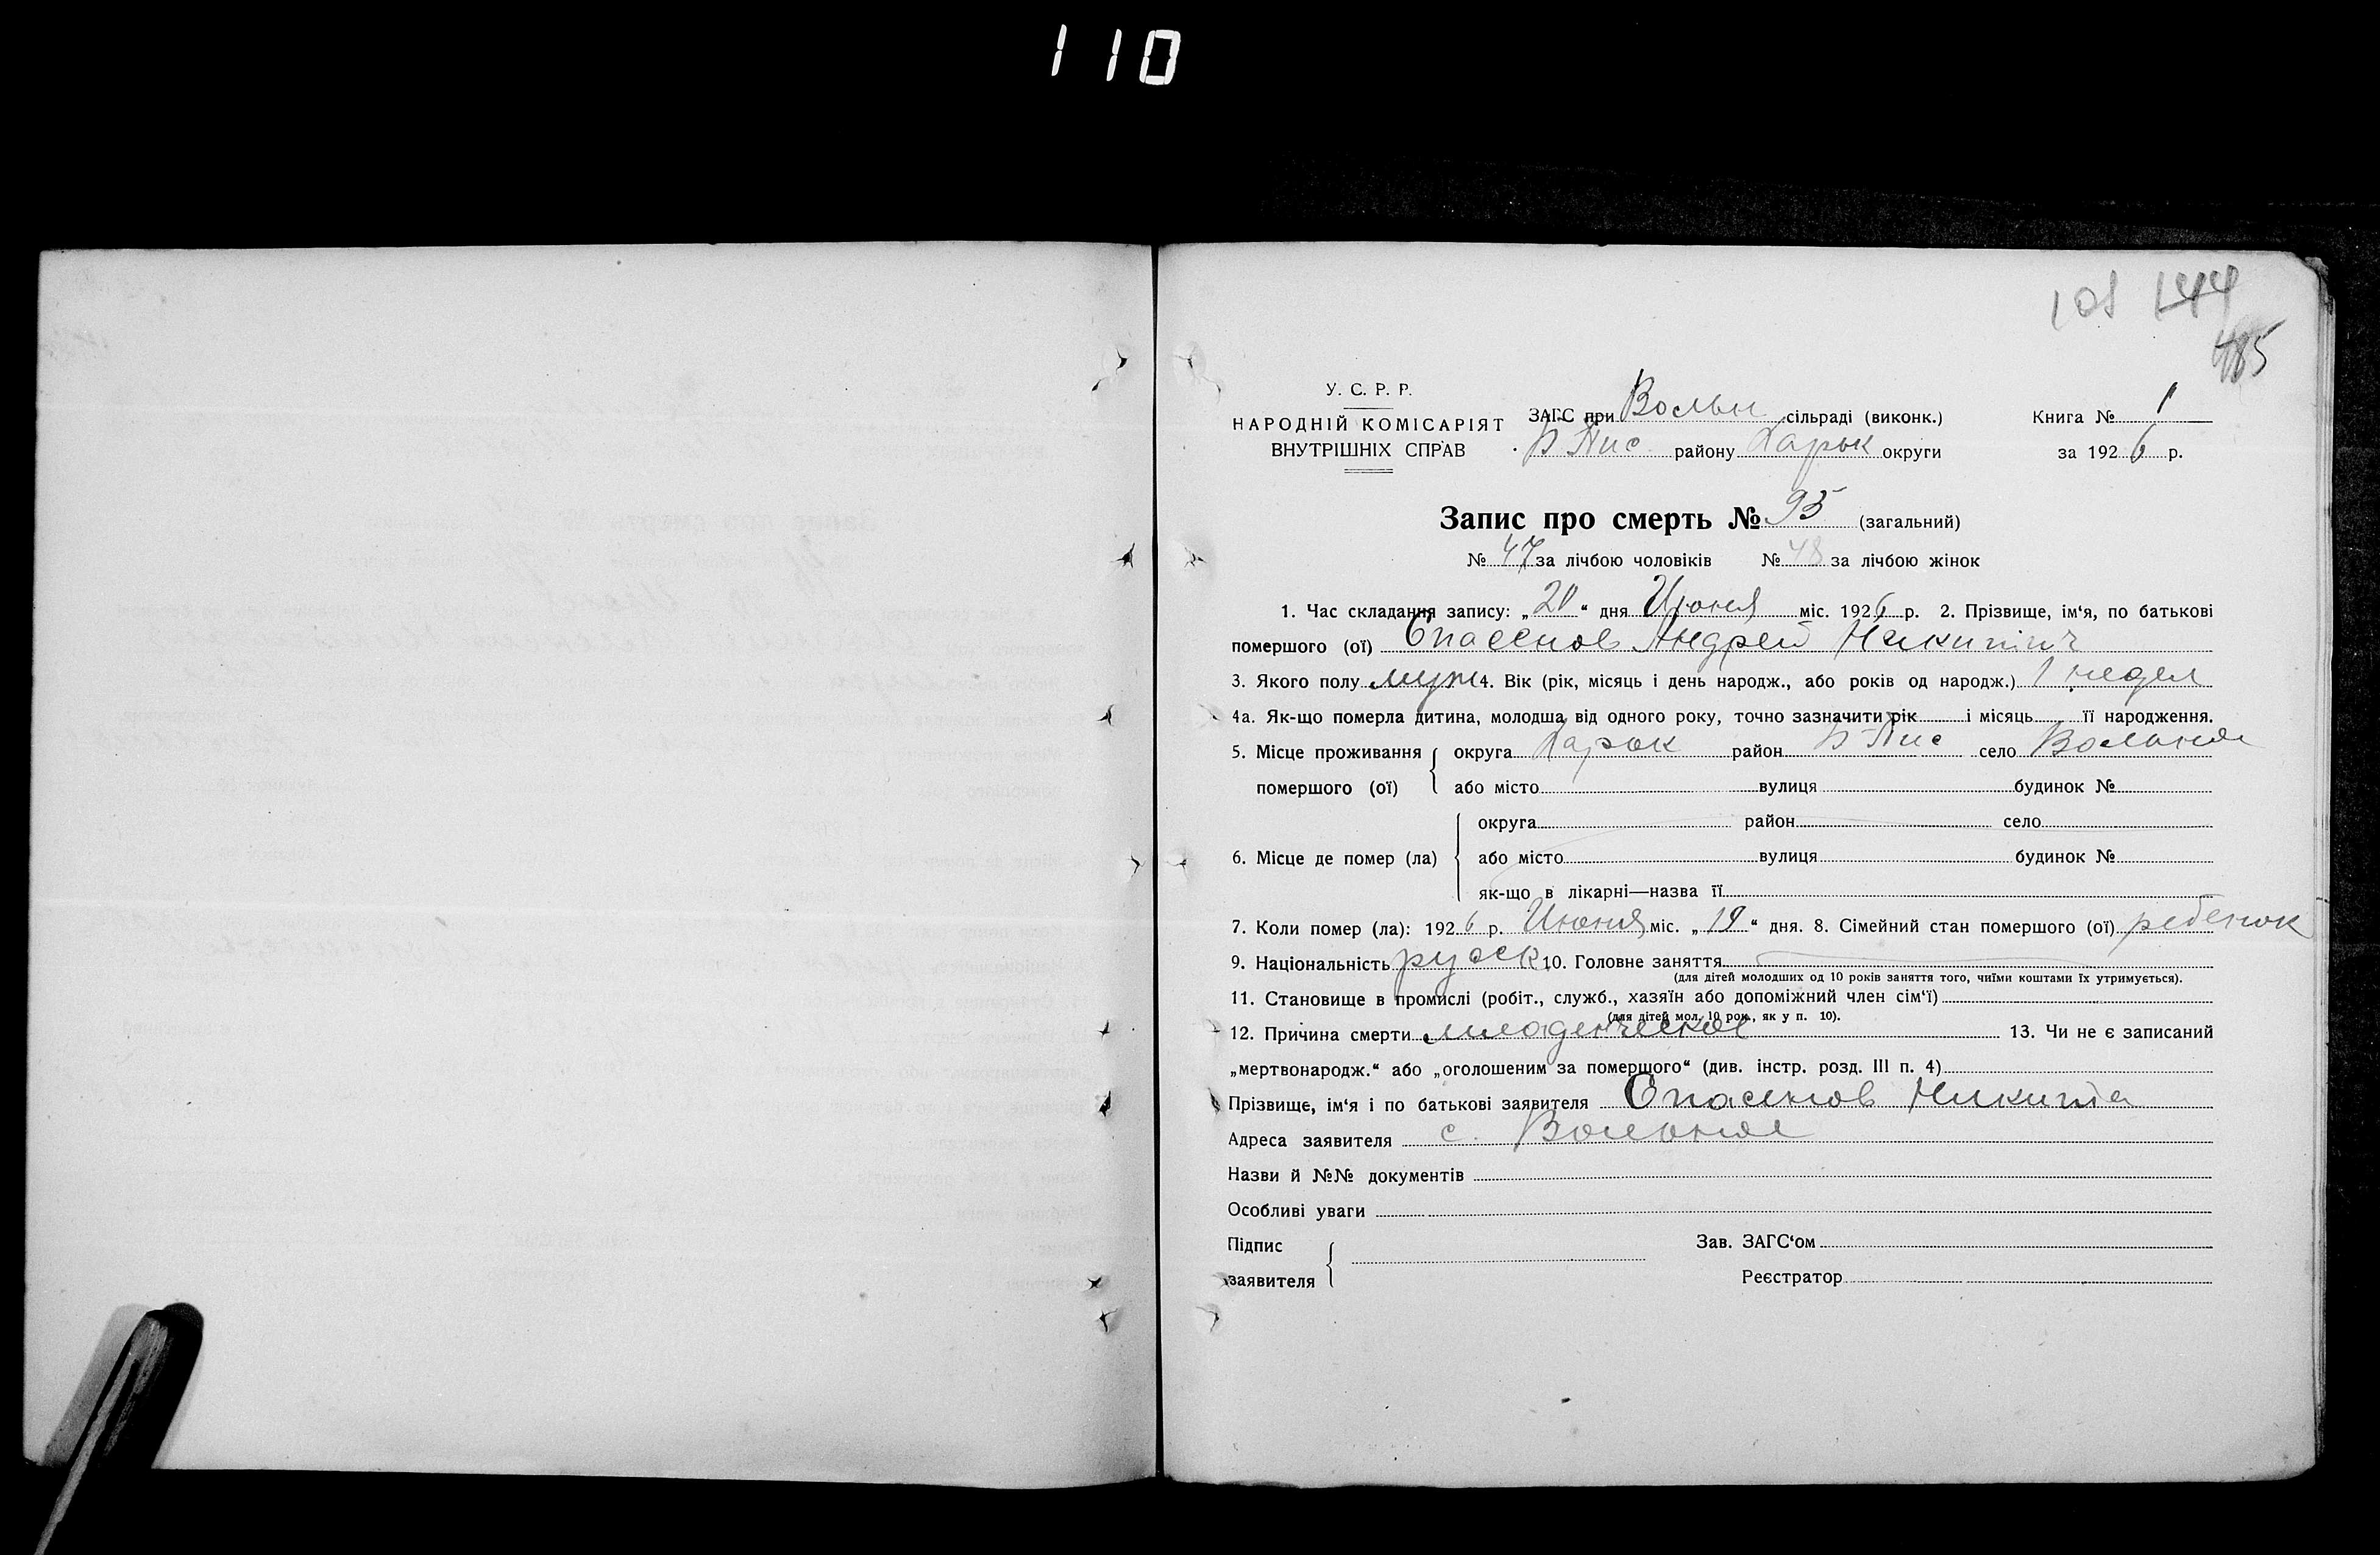 110
101 144
485
У. С. Р. Р.
НАРОДНІЙ КОМІСАРІЯТ
ВНУТРІШНІХ СПРАВ
ЗАГС при Вольн сільраді (виконк.) Книга № 1
Б Пис району Харьк округи за 1926 р.
Запис про смерть № 95 (загальний)
№ 47 за лічбою чоловіків № 48 за лічбою жінок
1. Час складання запису: „20“ дня Июня міс. 1926 р. 2. Прізвище, ім‘я, по батькові
помершого (ої) Спасенов Андрей Никитич
3. Якого полу муж 4. Вік (рік, місяць і день народж., або років од народж.) 1 недел
4а. Як-що померла дитина, молодша від одного року, точно зазначити рік і місяць її народження.
5. Місце проживання округа Харьк район Б-Пис село Вольное
помершого (ої) або місто вулиця будинок №
округа район село
6. Місце де помер (ла) або місто вулиця будинок №
як-що в лікарні—назва її
7. Коли помер (ла): 1926 р. Июня міс. „19“ дня. 8. Сімейний стан помершого (ої) ребенок
9. Національність русск 10. Головне заняття
(для дітей молодших од 10 років заняття того, чиїми коштами їх утримується).
11. Становище в промислі (робіт., служб., хазяїн або допоміжний член сім‘ї)
(для дітей мол. 10 рок., як у п. 10).
12. Причина смерти младенческое 13. Чи не є записаний
„мертвонародж.“ або „оголошеним за помершого“ (див. інстр. розд. III п. 4)
Прізвище, ім‘я і по батькові заявителя Спасенов Никита
Адреса заявителя с. Вольное
Назви й №№ документів
Особливі уваги
Підпис Зав. ЗАГС‘ом
заявителя Реєстратор